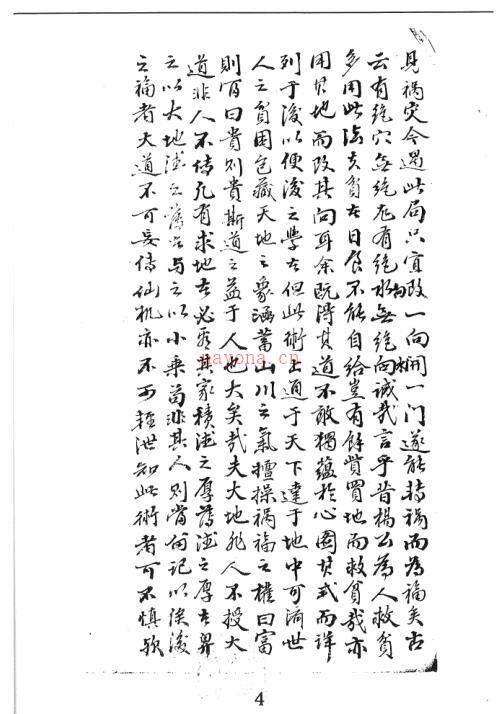 見禍災今遇此局只宜改一向開一門遂能轉禍而為福矣古
云有絕穴無絕龙有絕水無絕向誠哉言乎昔楊公為人救貧
多用此法夫貧者日食不能自給豈有餘貲買地而救貧哉亦
用其地而改其向耳余既得其道不敢獨蘊於心圖其式而詳
列于後以便後之學者但此術上通于天下達于地中可濟世
人之貧困包藏天地之象涵蓄山川之氣擅操禍福之權曰富
則富曰貴則貴斯道之益于人也大矣哉夫大地非人不授大
道非人不傳凡有求地者必看其家積德之厚薄德之厚者畀
之以大地德之薄者与之以小乘苟非其人則當留記以俟後
之福者大道不可妄傳仙机亦不可輕泄知此術者可不慎欤
nayona.cn
4